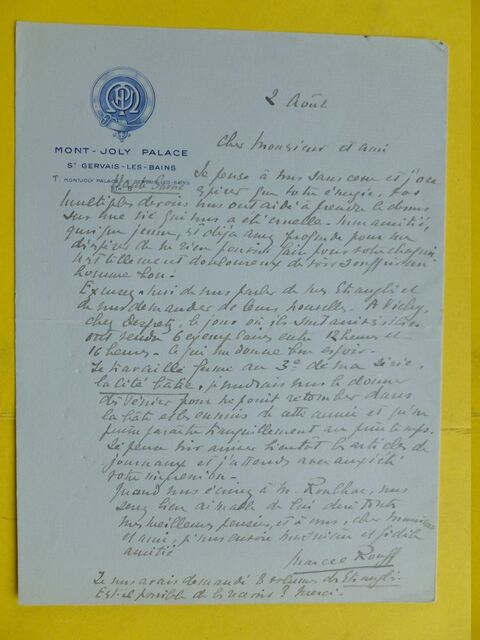 MONT-JOLY PALACE
ST GERVAIS-LES-BAINS
T. MONTJOLY PALACE
Haute Savoie
2 Août
Cher Monsieur et ami
Je pense à vous sans cesse et j'ose
espérer que votre énergie, vos
multiples devoirs vous ont aidé à prendre le dessus
sur une vie qui vous a été cruelle. Mon amitié,
quoique jeune, est déjà assez profonde pour me
de ne rien pouvoir faire pour votre chagrin.
Il est tellement douloureux de voir souffrir un
homme bon.
Excusez-moi de vous parler de mes Etranglés et
de vous demander de leurs nouvelles. A Vichy,
chez le jour où ils sont arrivés ils en
ont vendu 6 exemplaires entre 12 heures et
16 heures. Ce qui me donne bon espoir.
Je travaille ferme au 3e de ma série,
la Cité bâtie, je voudrais vous le donner
pour ne point retomber dans
la hâte et les ennuis de cette année et qu'on
puisse paraître tranquillement au printemps.
Je pense voir arriver bientôt les articles de
journaux et j'attends avec anxiété
votre impression.
Quand vous écrirez à M. vous
serez bien aimable de lui dire toutes
mes meilleures pensées, et à vous, cher Monsieur
et ami, je vous envoie ma et fidèle
amitié
Marcel Rouff
Je vous avais demandé 8 volumes des Etranglés.
Est-il possible de les avoir? Merci.